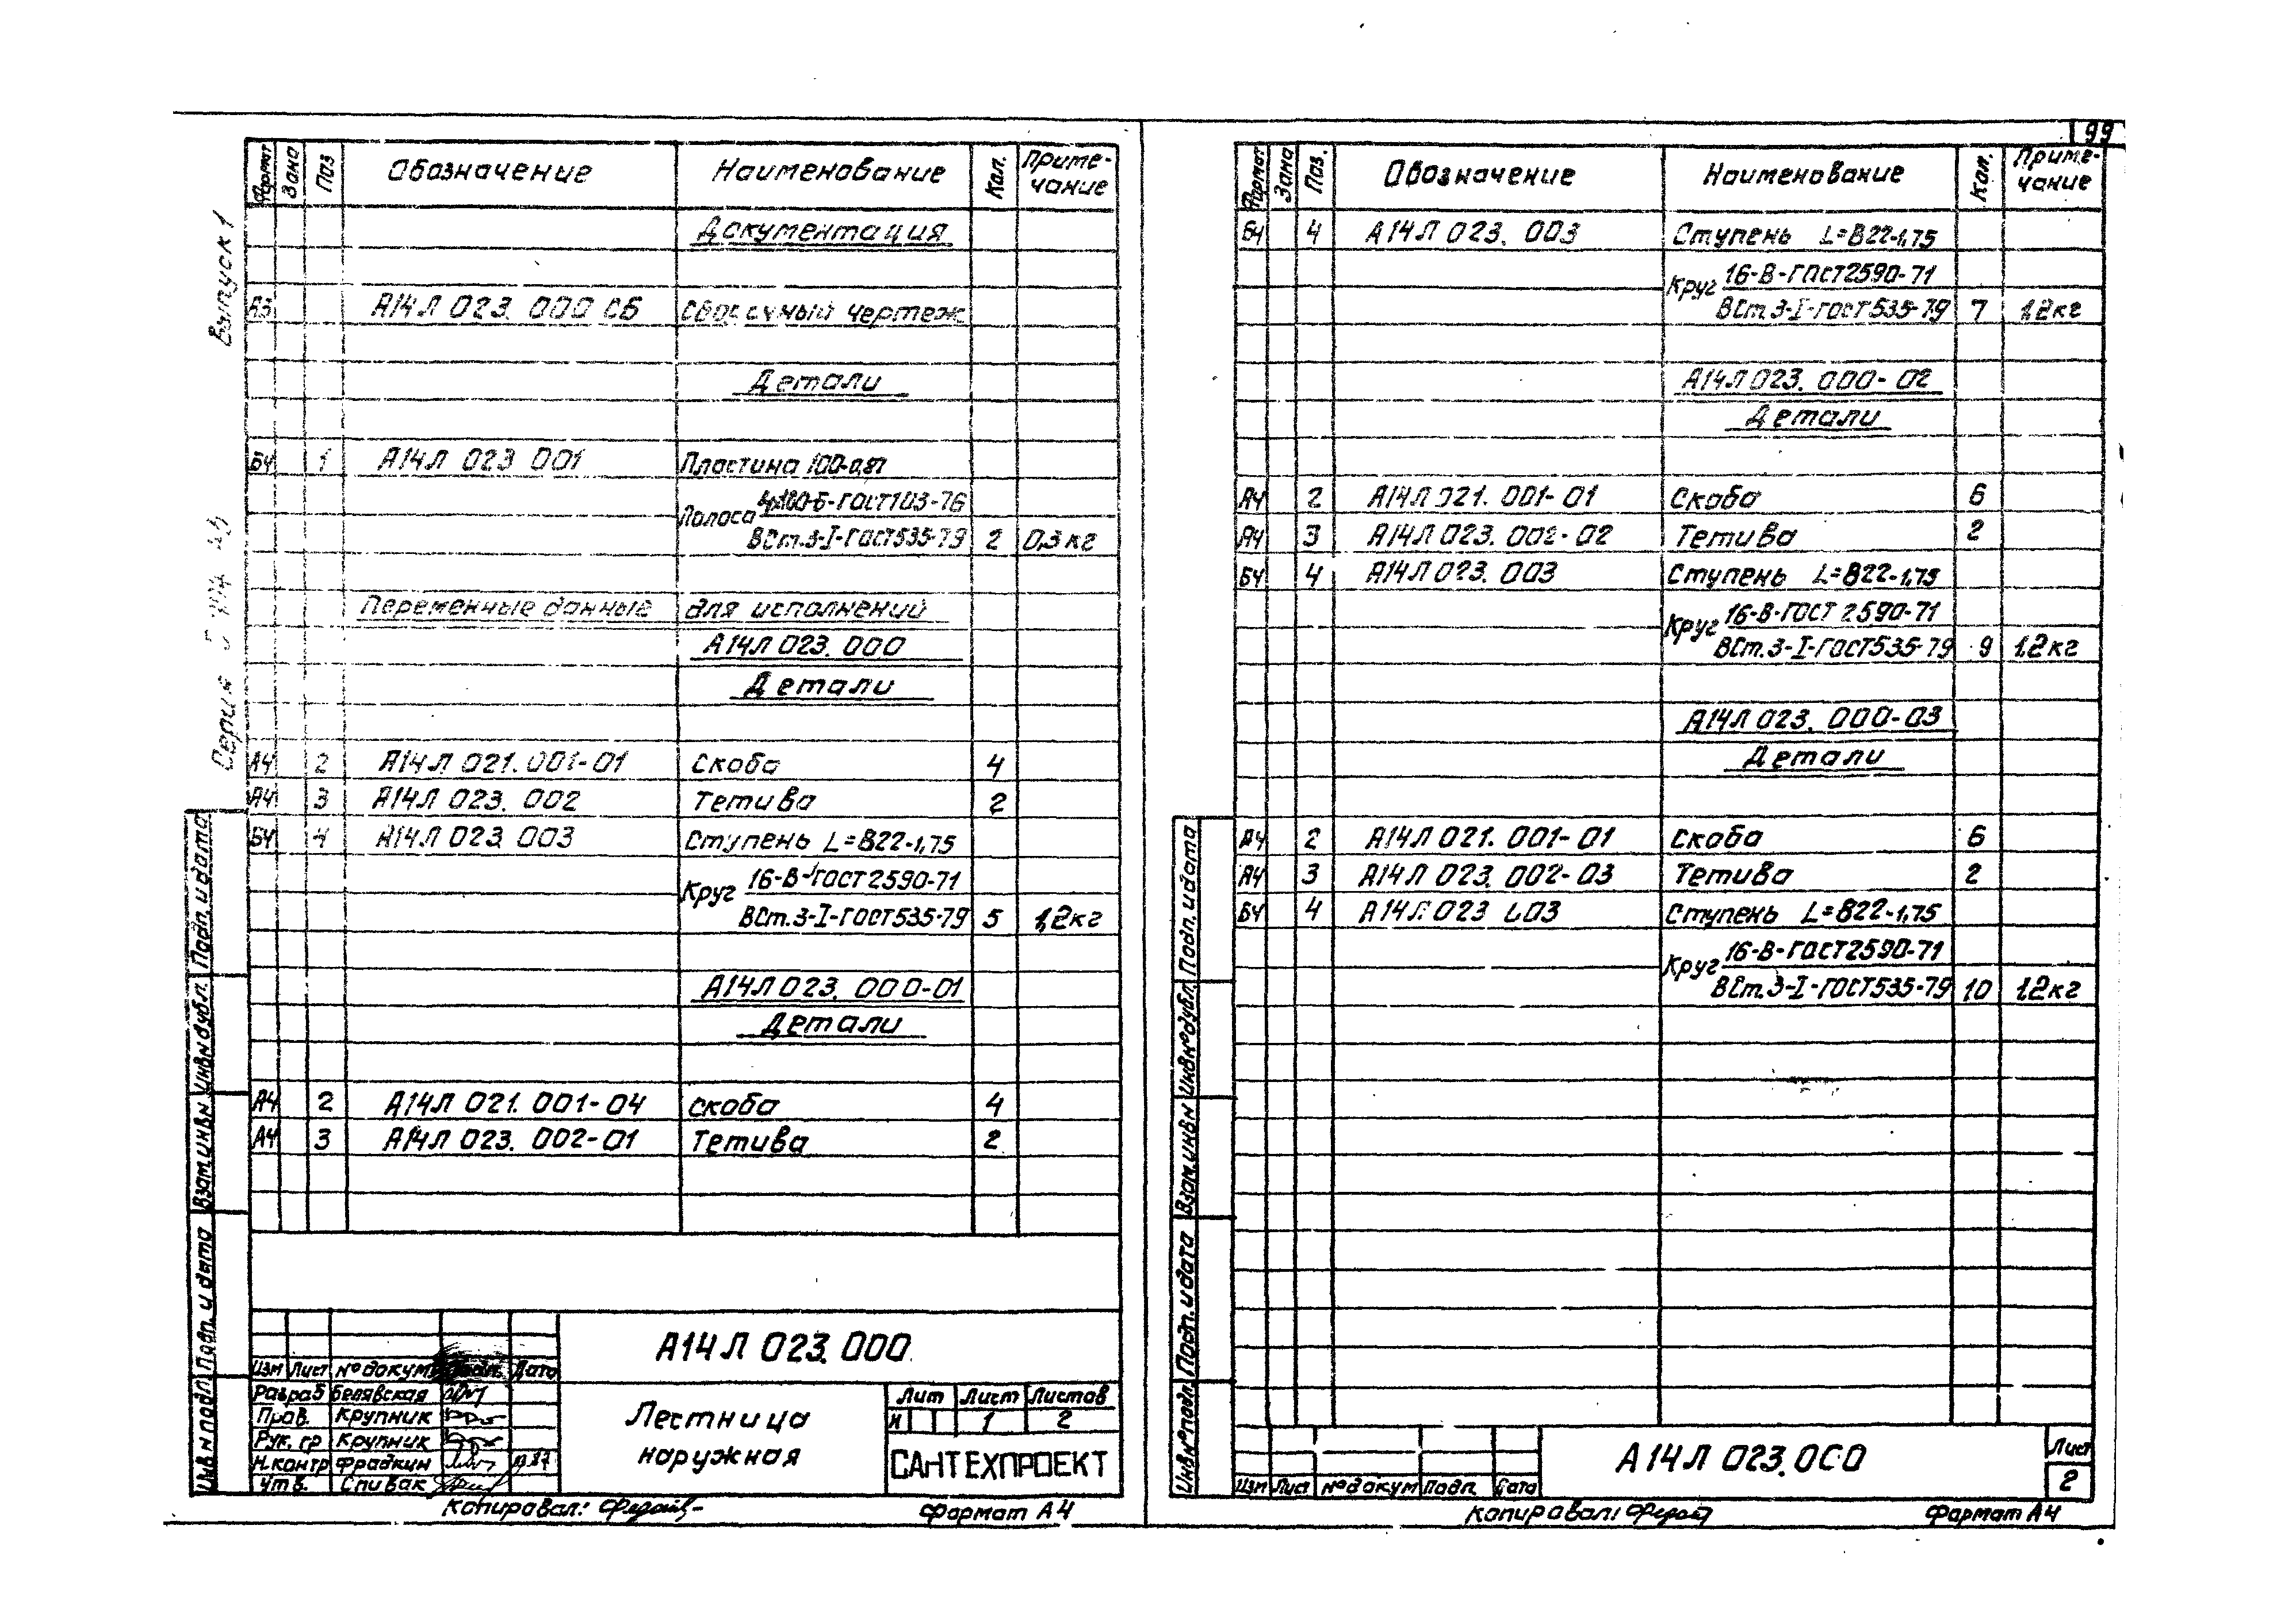 99
Выпуск 1
Серия 5
Формат Зона Поз Обозначение Наименование Кол. Приме-
чание
Документация
А3 А14Л 023. 000 СБ Сборочный чертеж
Детали
БЧ 1 А14Л 023 001 Пластина 100-0,87
Полоса 4х100-Б-ГОСТ103-76
ВСт.3-I-ГОСТ535-79 2 0,3 кг
Переменные данные для исполнений
А14Л 023. 000
Детали
А4 2 А14Л 021. 001-01 Скоба 4
А4 3 А14Л 023. 002 Тетива 2
БЧ 4 А14Л 023. 003 Ступень L=822-1,75
Круг 16-В-ГОСТ2590-71
ВСт.3-I-ГОСТ535-79 5 1,2 кг
А14Л 023. 000-01
Детали
А4 2 А14Л 021. 001-04 Скоба 4
А4 3 А14Л 023. 002-01 Тетива 2
Подп. и дата
Инв N дубл.
Взам. инв N
Подп. и дата
Инв N подл.
А14Л 023. 000
Изм Лист № докум Подп. Дата
Разраб Белявская
Пров. Крупник
Рук. гр Крупник
Н.контр Фрадкин
Утв. Спивак
Лестница
наружная
Лит Лист Листов
И 1 2
САНТЕХПРОЕКТ
Копировал: Формат А4
Формат Зона Поз. Обозначение Наименование Кол. Приме-
чание
БЧ 4 А14Л 023. 003 Ступень L=822-1,75
Круг 16-В-ГОСТ2590-71
ВСт.3-I-ГОСТ535-79 7 1,2 кг
А14Л 023. 000-02
Детали
А4 2 А14Л 021. 001-01 Скоба 6
А4 3 А14Л 023. 002-02 Тетива 2
БЧ 4 А14Л 023. 003 Ступень L=822-1,75
Круг 16-В-ГОСТ 2590-71
ВСт.3-I-ГОСТ535-79 9 1.2 кг
А14Л 023. 000-03
Детали
А4 2 А14Л 021. 001-01 Скоба 6
А4 3 А14Л 023. 002-03 Тетива 2
БЧ 4 А14Л 023 003 Ступень L=822-1,75
Круг 16-В-ГОСТ2590-71
ВСт.3-I-ГОСТ535-79 10 1.2 кг
Подп. и дата
Инв № дубл.
Взам. инв N
Подп. и дата
Инв № подл.
Изм Лист № докум Подп. Дата
А14Л 023. 000
Лист
2
Копировал: Формат А4